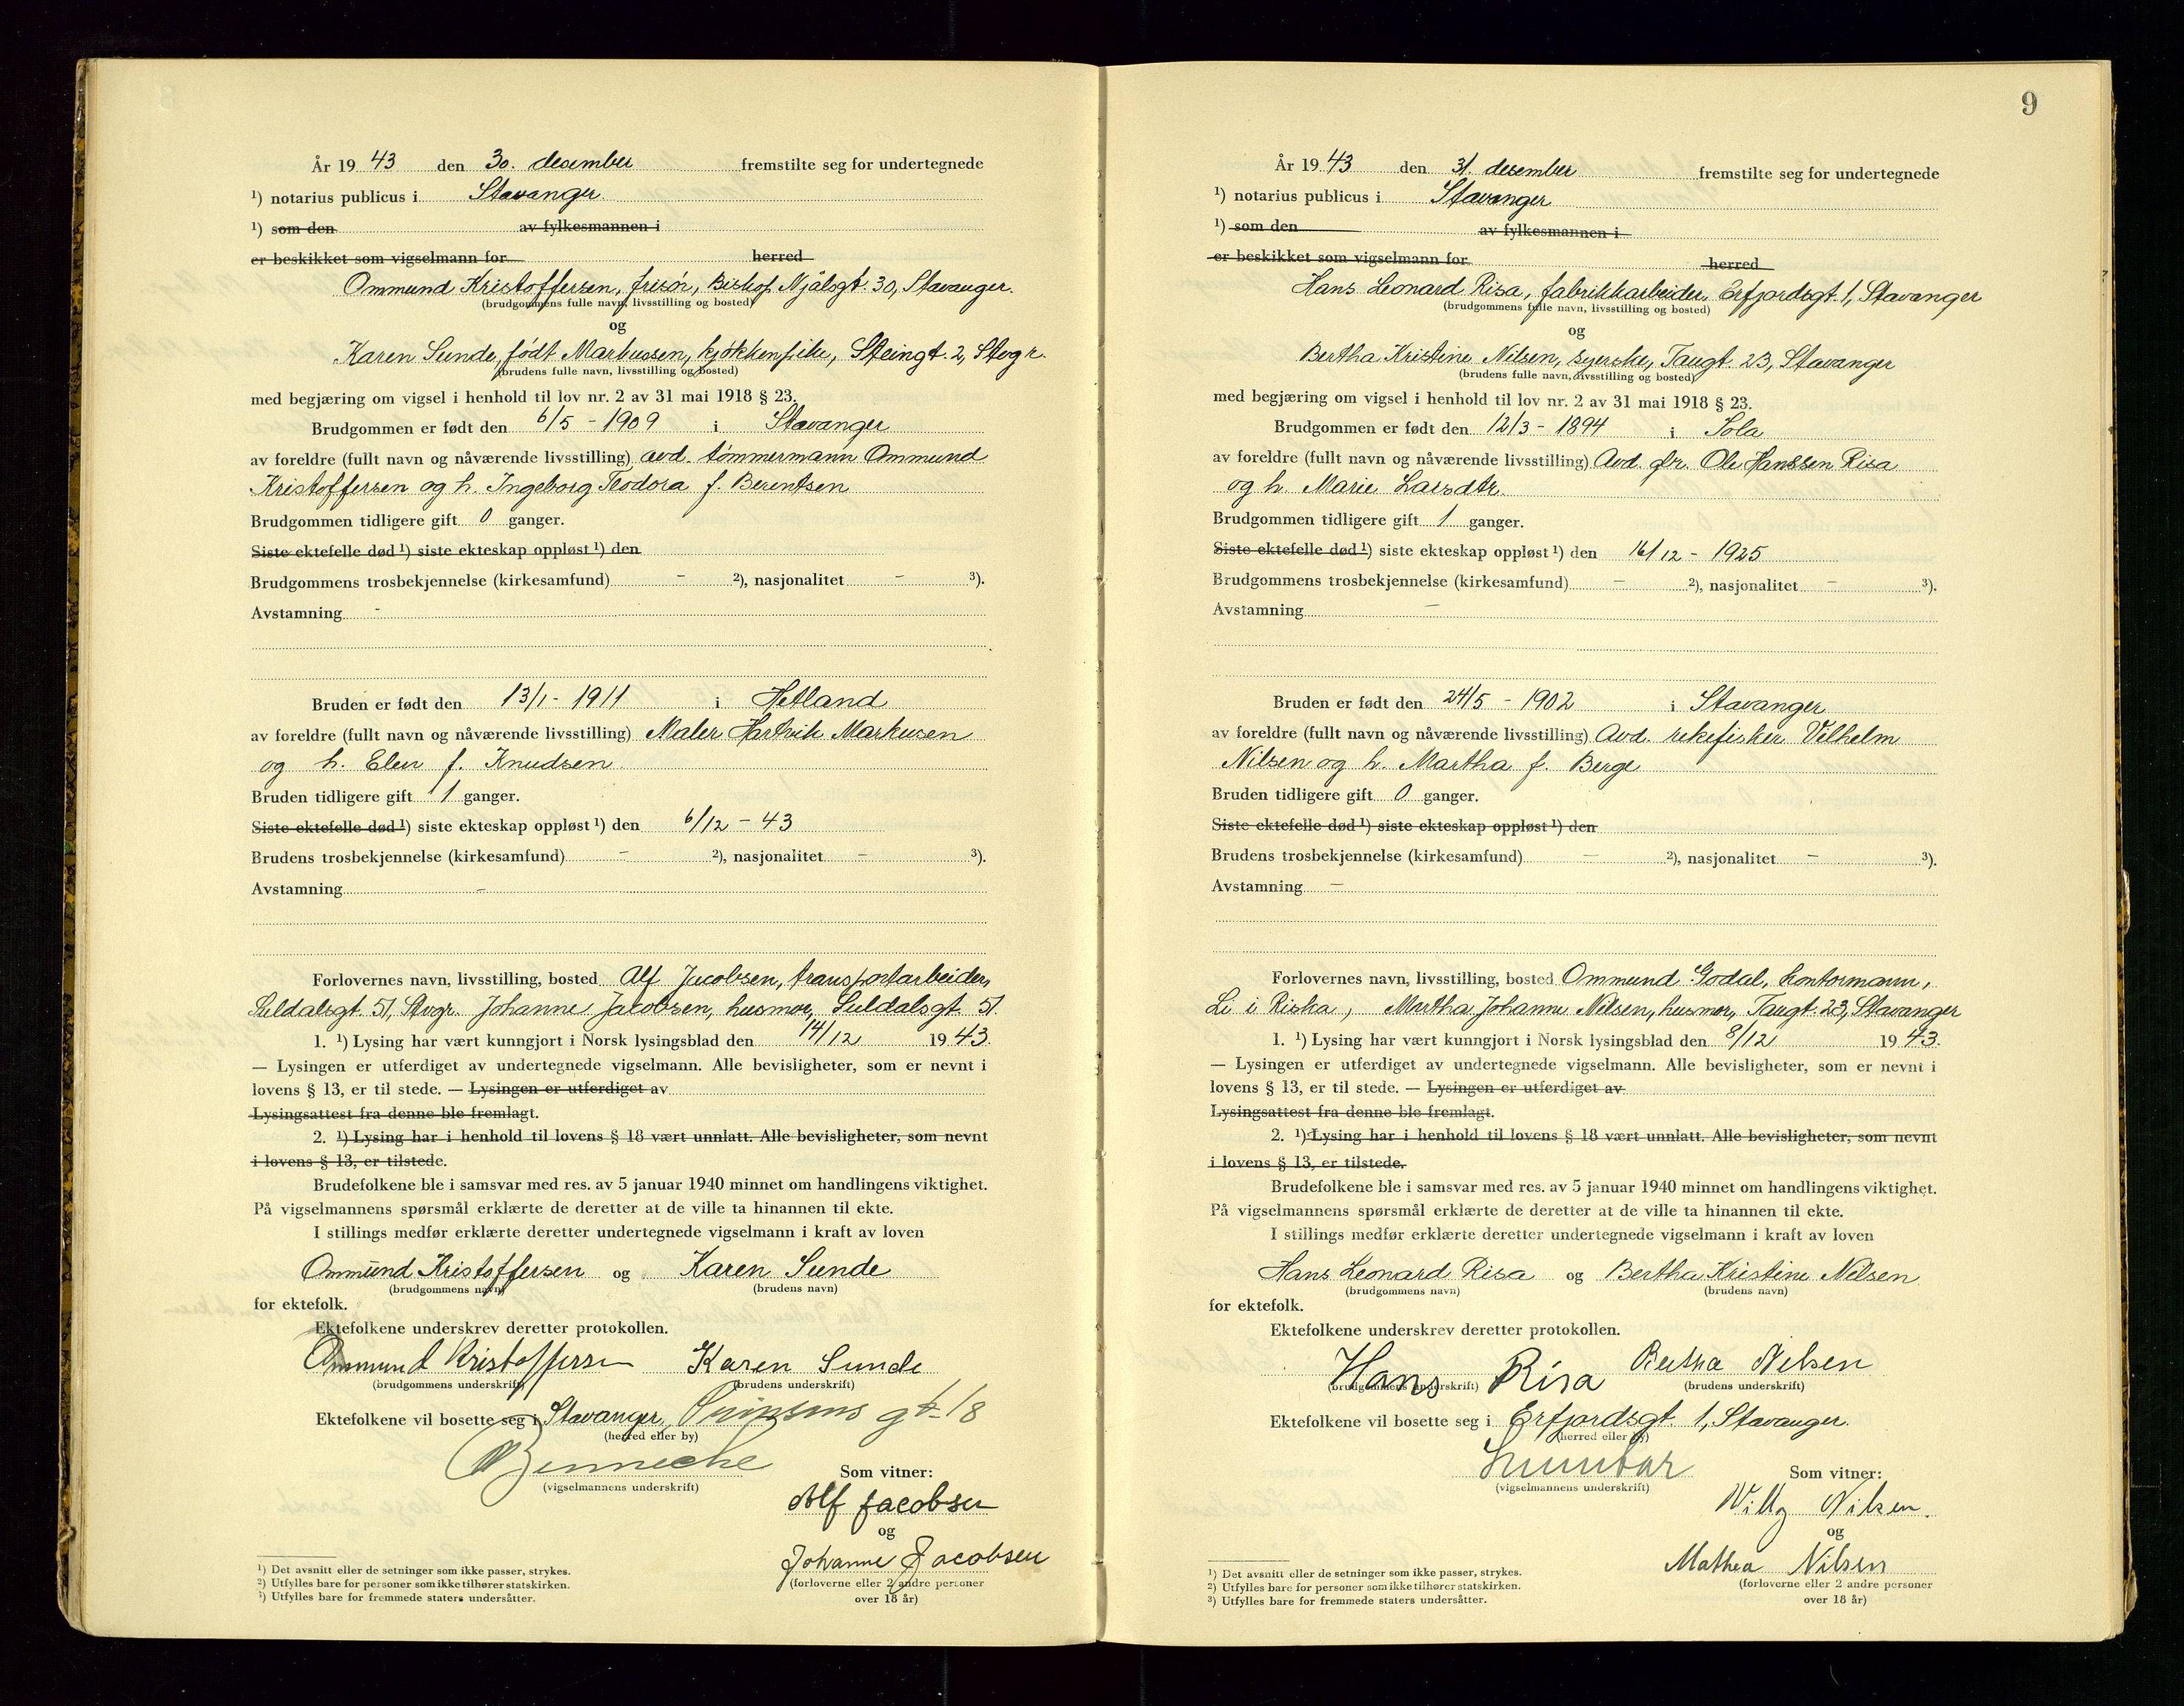 År 1943 den 30. desember fremstilte seg for undertegnede
¹) notarius publicus i Stavanger.
¹) som den av fylkesmannen i
er beskikket som vigselmann for herred
Ommund Kristoffersen, frisør, Biskop Njålsgt. 30, Stavanger.
(brudgommens fulle navn, livsstilling og bosted)
og
Karen Sunde, født Markussen, kjøkkenpike, Steingt. 2, Stvgr.
(brudens fulle navn, livsstilling og bosted)
med begjæring om vigsel i henhold til lov nr. 2 av 31 mai 1918 § 23.
Brudgommen er født den 6/5 - 1909 i Stavanger
av foreldre (fullt navn og nåværende livsstilling) avd. tømmermann Ommund
Kristoffersen og h. Ingeborg Teodora f. Berentsen
Brudgommen tidligere gift 0 ganger.
Siste ektefelle død ¹) siste ekteskap oppløst ¹) den
Brudgommens trosbekjennelse (kirkesamfund) - ²), nasjonalitet - ³).
Avstamning -
Bruden er født den 13/1 - 1911 i Hetland
av foreldre (fullt navn og nåværende livsstilling) Maler Hartvik Markusen
og h. Elen f. Knudsen
Bruden tidligere gift 1 ganger.
Siste ektefelle død ¹) siste ekteskap oppløst ¹) den 6/12 - 43
Brudens trosbekjennelse (kirkesamfund) - ²), nasjonalitet - ³).
Avstamning -
Forlovernes navn, livsstilling, bosted Alf Jacobsen, transportarbeider,
Suldalsgt. 51, Stvgr. Johanne Jacobsen, husmor, Suldalsgt. 51.
1. ¹) Lysing har vært kunngjort i Norsk lysingsblad den 14/12 1943.
— Lysingen er utferdiget av undertegnede vigselmann. Alle bevisligheter, som er nevnt i
lovens § 13, er til stede. — Lysingen er utferdiget av
Lysingsattest fra denne ble fremlagt.
2. ¹) Lysing har i henhold til lovens § 18 vært unnlatt. Alle bevisligheter, som nevnt
i lovens § 13, er tilstede.
Brudefolkene ble i samsvar med res. av 5 januar 1940 minnet om handlingens viktighet.
På vigselmannens spørsmål erklærte de deretter at de ville ta hinannen til ekte.
I stillings medfør erklærte deretter undertegnede vigselmann i kraft av loven
Ommund Kristoffersen og Karen Sunde
(brudgommens navn) (brudens navn)
for ektefolk.
Ektefolkene underskrev deretter protokollen.
Ommund Kristoffersen Karen Sunde
(brudgommens underskrift) (brudens underskrift)
Ektefolkene vil bosette seg i Stavanger, gt. 18
(herred eller by)
(vigselmannens underskrift)
Som vitner:
Alf Jacobsen
og
Johanne Jacobsen
(forloverne eller 2 andre personer
over 18 år)
¹) Det avsnitt eller de setninger som ikke passer, strykes.
²) Utfylles bare for personer som ikke tilhører statskirken.
³) Utfylles bare for fremmede staters undersåtter.
9
År 1943 den 31. desember fremstilte seg for undertegnede
¹) notarius publicus i Stavanger
¹) som den av fylkesmannen i
er beskikket som vigselmann for herred
Hans Leonard Risa, fabrikkarbeider, Erfjordsgt. 1, Stavanger
(brudgommens fulle navn, livsstilling og bosted)
og
Bertha Kristine Nilsen, syerske, Taugt. 23, Stavanger
(brudens fulle navn, livsstilling og bosted)
med begjæring om vigsel i henhold til lov nr. 2 av 31 mai 1918 § 23.
Brudgommen er født den 12/3 - 1894 i Sola
av foreldre (fullt navn og nåværende livsstilling) Avd. gbr. Ole Hanssen Risa
og h. Marie Larsdtr.
Brudgommen tidligere gift 1 ganger.
Siste ektefelle død ¹) siste ekteskap oppløst ¹) den 16/12 - 1925
Brudgommens trosbekjennelse (kirkesamfund) - ²), nasjonalitet - ³).
Avstamning -
Bruden er født den 24/5 - 1902 i Stavanger
av foreldre (fullt navn og nåværende livsstilling) Avd. rekefisker Vilhelm
Nilsen og h. Martha f. Berge
Bruden tidligere gift 0 ganger.
Siste ektefelle død ¹) siste ekteskap oppløst ¹) den
Brudens trosbekjennelse (kirkesamfund) - ²), nasjonalitet - ³).
Avstamning -
Forlovernes navn, livsstilling, bosted Ommund Godal, kontormann,
Li i Riska, Martha Johanne Nilsen, husmor, Taugt. 23, Stavanger
1. ¹) Lysing har vært kunngjort i Norsk lysingsblad den 8/12 1943.
— Lysingen er utferdiget av undertegnede vigselmann. Alle bevisligheter, som er nevnt i
lovens § 13, er til stede. — Lysingen er utferdiget av
Lysingsattest fra denne ble fremlagt.
2. ¹) Lysing har i henhold til lovens § 18 vært unnlatt. Alle bevisligheter, som nevnt
i lovens § 13, er tilstede.
Brudefolkene ble i samsvar med res. av 5 januar 1940 minnet om handlingens viktighet.
På vigselmannens spørsmål erklærte de deretter at de ville ta hinannen til ekte.
I stillings medfør erklærte deretter undertegnede vigselmann i kraft av loven
Hans Leonard Risa og Bertha Kristine Nilsen
(brudgommens navn) (brudens navn)
for ektefolk.
Ektefolkene underskrev deretter protokollen.
Hans Risa Bertha Nilsen
(brudgommens underskrift) (brudens underskrift)
Ektefolkene vil bosette seg i Erfjordsgt. 1, Stavanger.
(herred eller by)
(vigselmannens underskrift)
Som vitner:
Willy Nilsen.
og
Mathea Nilsen
(forloverne eller 2 andre personer
over 18 år)
¹) Det avsnitt eller de setninger som ikke passer, strykes.
²) Utfylles bare for personer som ikke tilhører statskirken.
³) Utfylles bare for fremmede staters undersåtter.